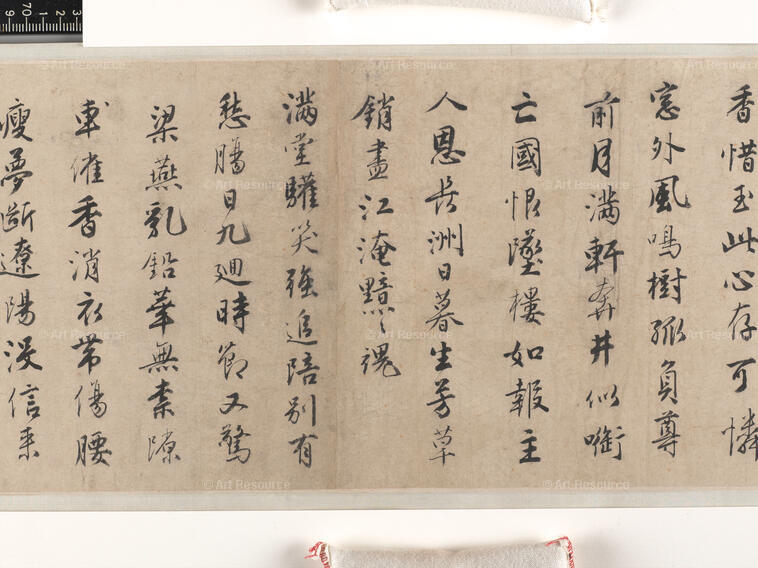 香惜玉此心存可憐
窓外風鳴樹孤負尊
前月满軒奔井似啣
亡國恨墜樓如報主
人恩长洲日暮生芳草
銷盡江淹黯〻魂
满堂驩笑強追陪别有
愁腸日九廻時節又驚
梁燕乳鉛華無柰隙
駒催香消衣帶傷腰
瘦夢斷遼陽没信来
9 70 1 2 3
© Art Resource